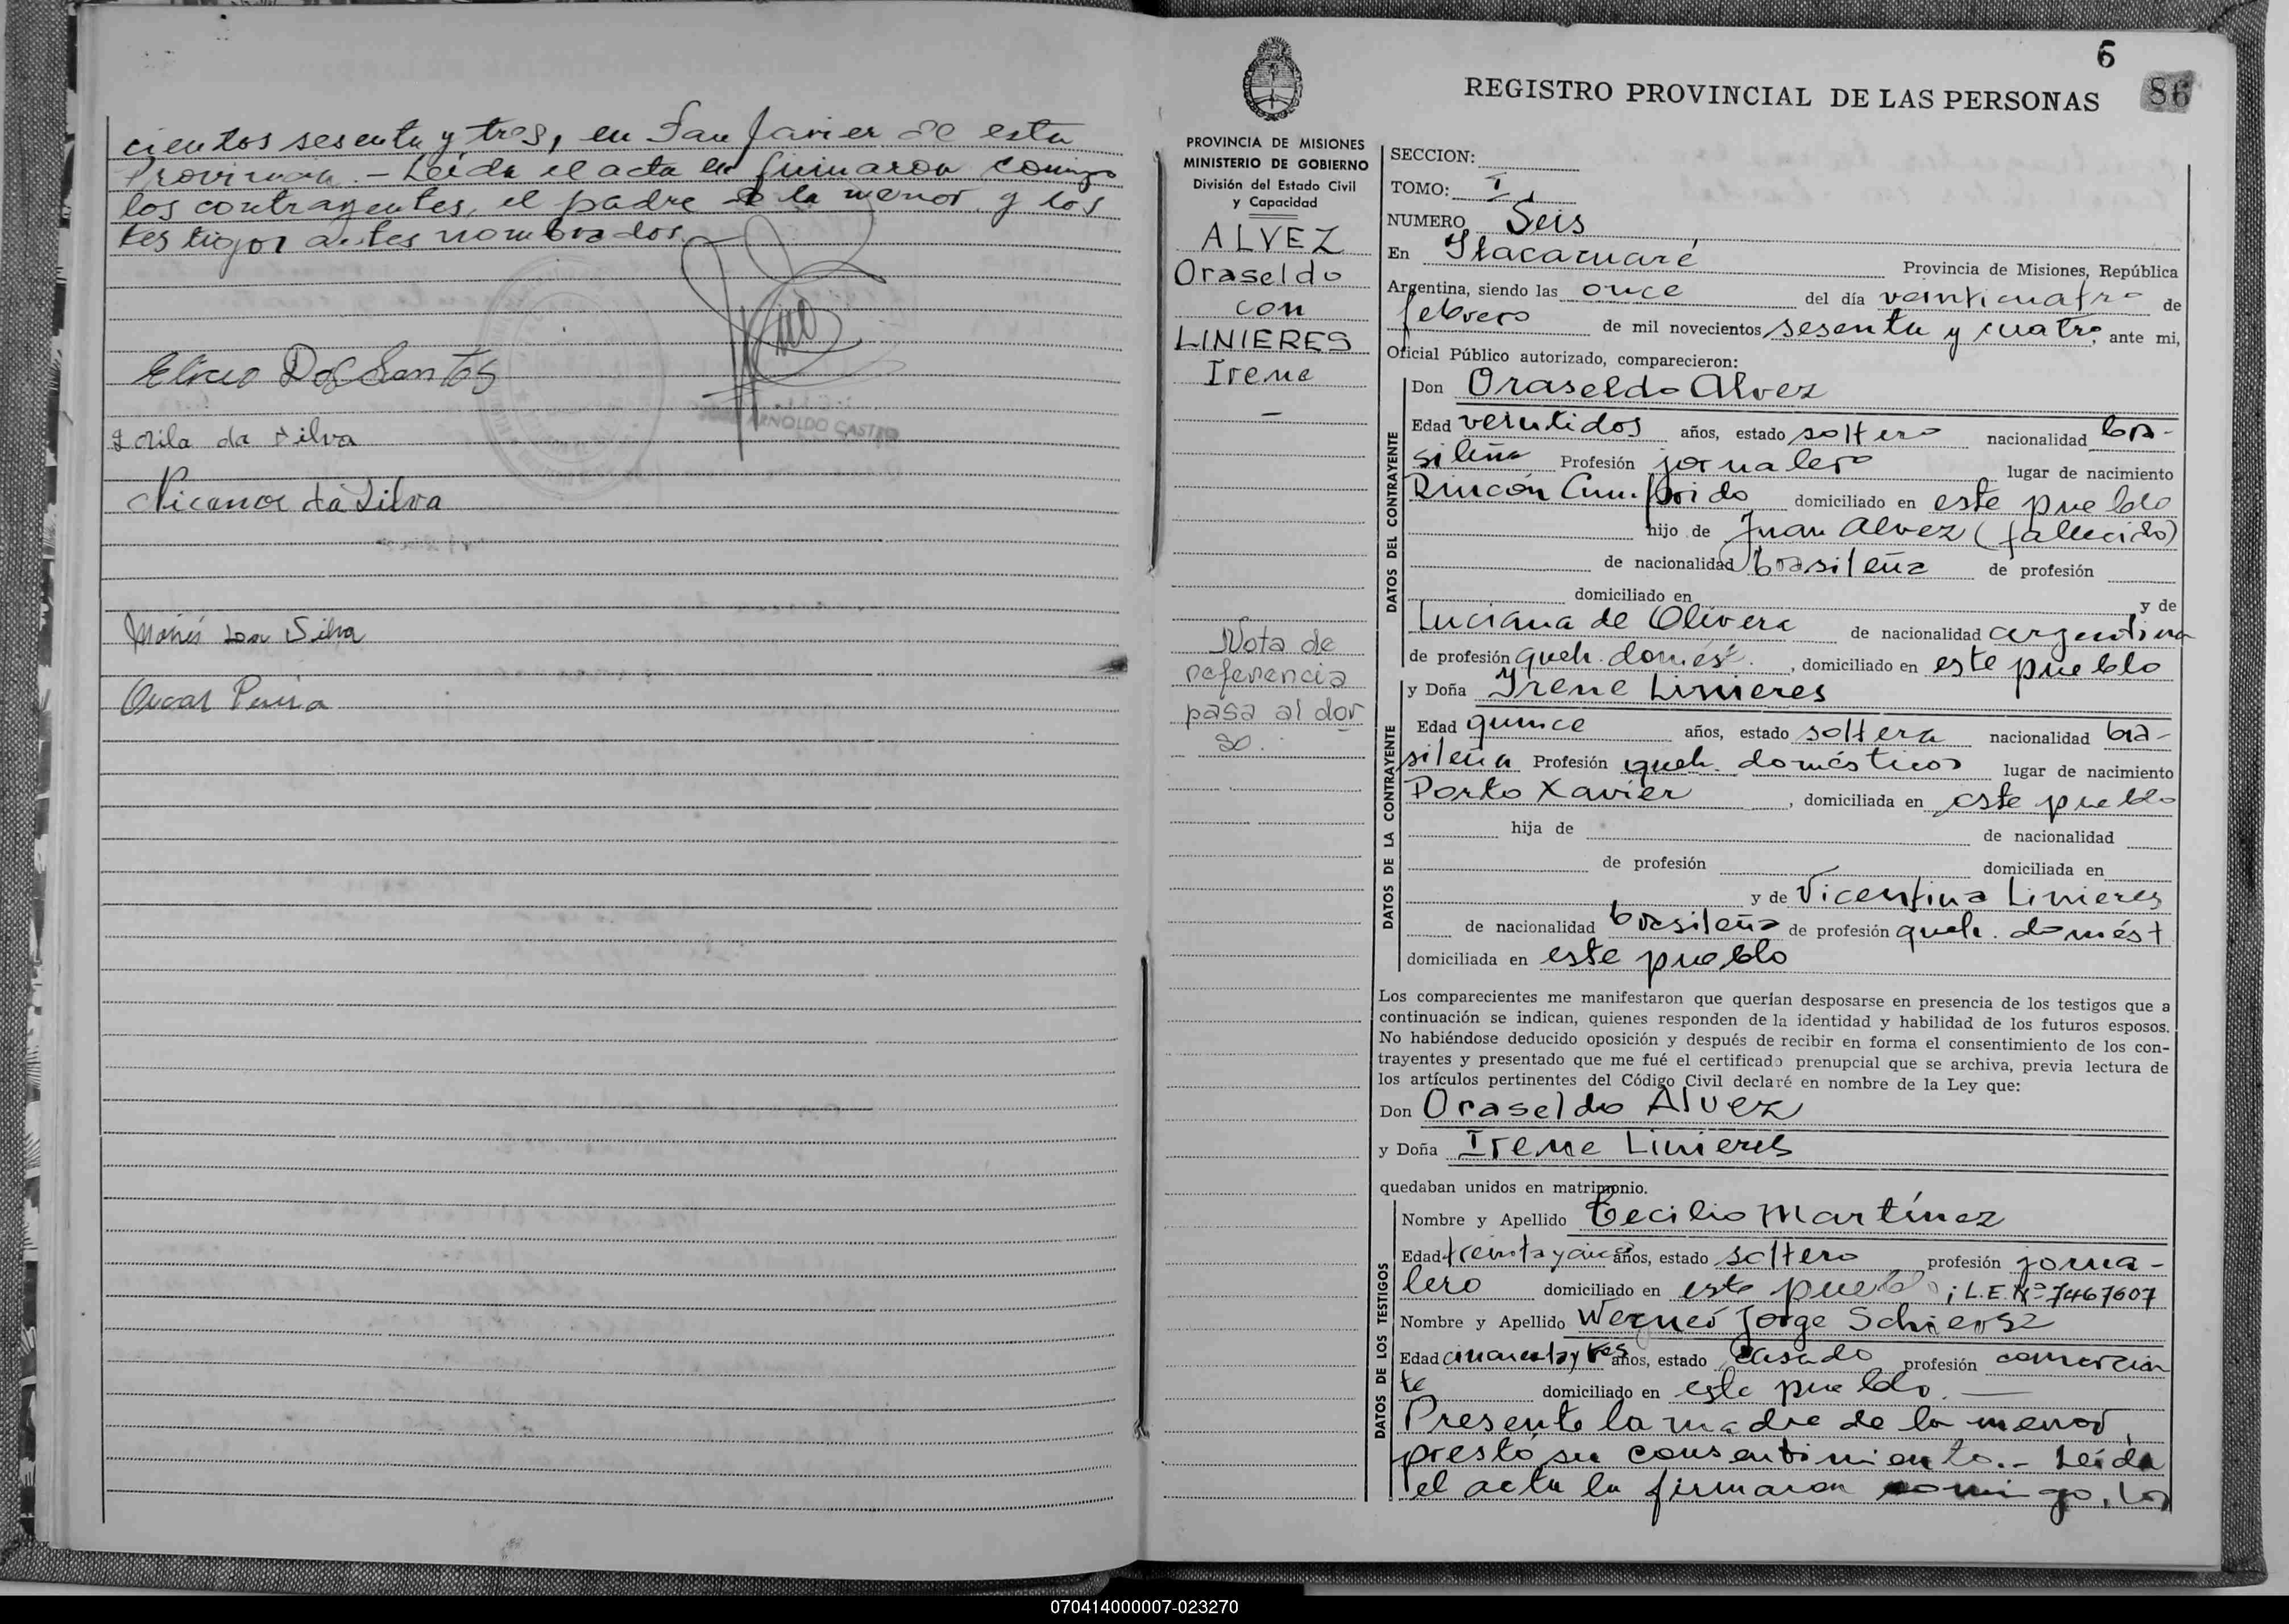 cientos sesenta y tres, en San Javier de esta
Provincia.- Leída el acta la firmaron comigo
los contrayentes, el padre de la menor y los
testigos antes nombrados.
Elixeo Dos Santos
ARNOLDO CASTRO
da Silva
Nicanor da Silva
da Silva
Oscar
6
REGISTRO PROVINCIAL DE LAS PERSONAS 86
PROVINCIA DE MISIONES
MINISTERIO DE GOBIERNO
División del Estado Civil
y Capacidad
ALVEZ
Oraseldo
con
LINIERES
Irene
Nota de
referencia
pasa al dor
so.
SECCION:
TOMO: I
NUMERO Seis
En Itacaruaré Provincia de Misiones, República
Argentina, siendo las once del día veinticuatro de
febrero de mil novecientos sesenta y cuatro, ante mi,
Oficial Público autorizado, comparecieron:
DATOS DEL CONTRAYENTE
Don Oraseldo Alvez
Edad veintidos años, estado soltero nacionalidad bra-
sileña Profesión jornalero lugar de nacimiento
Rincón Cumprido domiciliado en este pueblo
hijo de Juan Alvez (fallecido)
de nacionalidad brasileña de profesión
domiciliado en y de
Luciana de Olivera de nacionalidad argentina
de profesión queh. domést. , domiciliado en este pueblo
DATOS DE LA CONTRAYENTE
y Doña Irene Linieres
Edad quince años, estado soltera nacionalidad bra-
sileña Profesión queh. domésticos lugar de nacimiento
Porto Xavier , domiciliada en este pueblo
hija de de nacionalidad
de profesión domiciliada en
y de Vicentina Linieres
de nacionalidad brasileña de profesión queh. domést
domiciliada en este pueblo
Los comparecientes me manifestaron que querían desposarse en presencia de los testigos que a
continuación se indican, quienes responden de la identidad y habilidad de los futuros esposos.
No habiéndose deducido oposición y después de recibir en forma el consentimiento de los con-
trayentes y presentado que me fué el certificado prenupcial que se archiva, previa lectura de
los artículos pertinentes del Código Civil declaré en nombre de la Ley que:
Don Oraseldo Alvez
y Doña Irene Linieres
quedaban unidos en matrimonio.
DATOS DE LOS TESTIGOS
Nombre y Apellido Cecilio Martínez
Edad treinta y años, estado soltero profesión jorna-
lero domiciliado en este pueblo ; L.E. Nº 7467607
Nombre y Apellido Jorge
Edad cincuenta y tres años, estado casado profesión comercian
te domiciliado en este pueblo.
Presente la madre de la menor,
prestó su consentimiento.- Leída
el acta la firmaron comigo, los
070414000007-023270